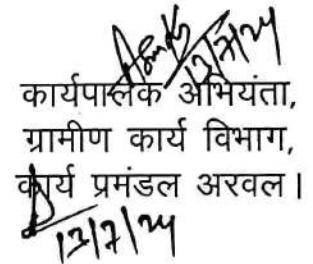 13/7/24
कार्यपालक अभियंता,
ग्रामीण कार्य विभाग,
कार्य प्रमंडल अरवल।
13/7/24